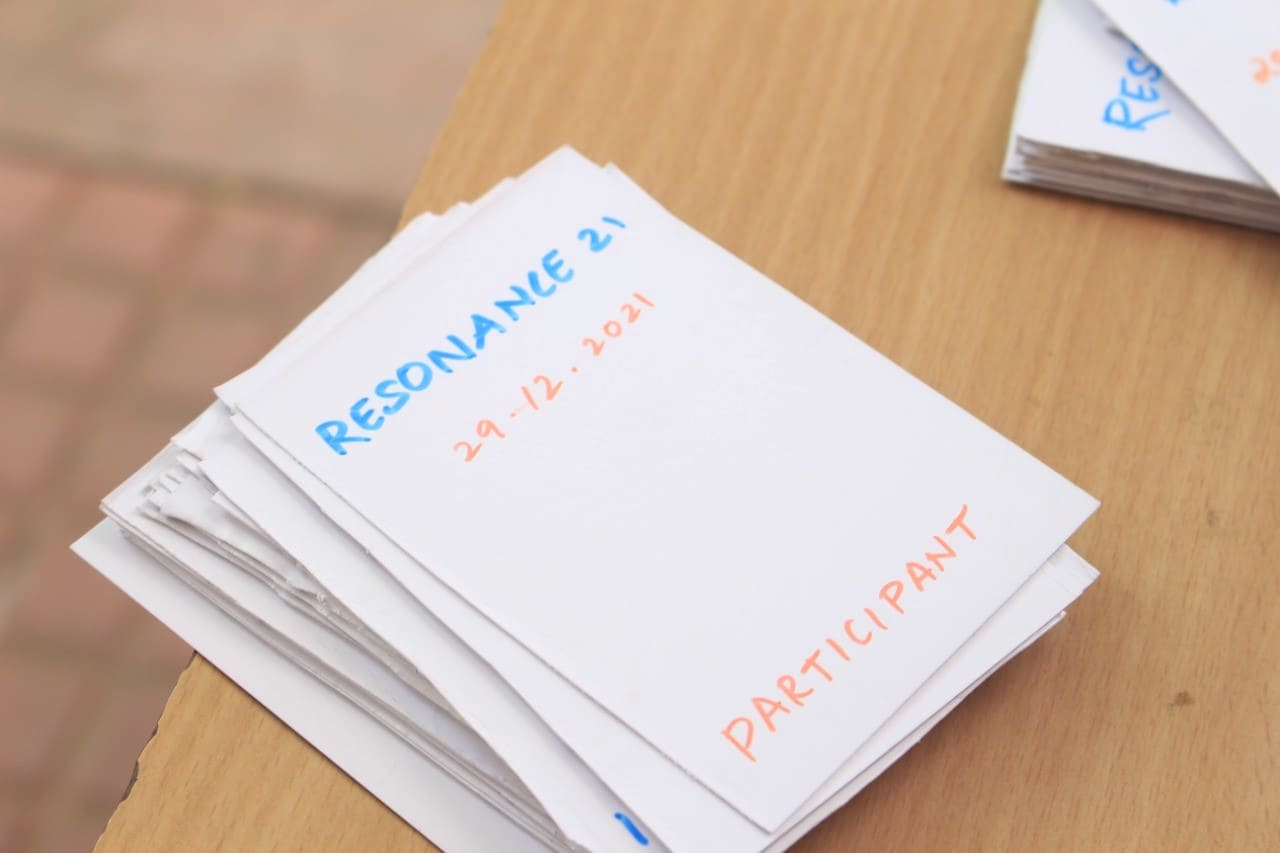 RESONANCE 21
29.12.2021
PARTICIPANT
RES